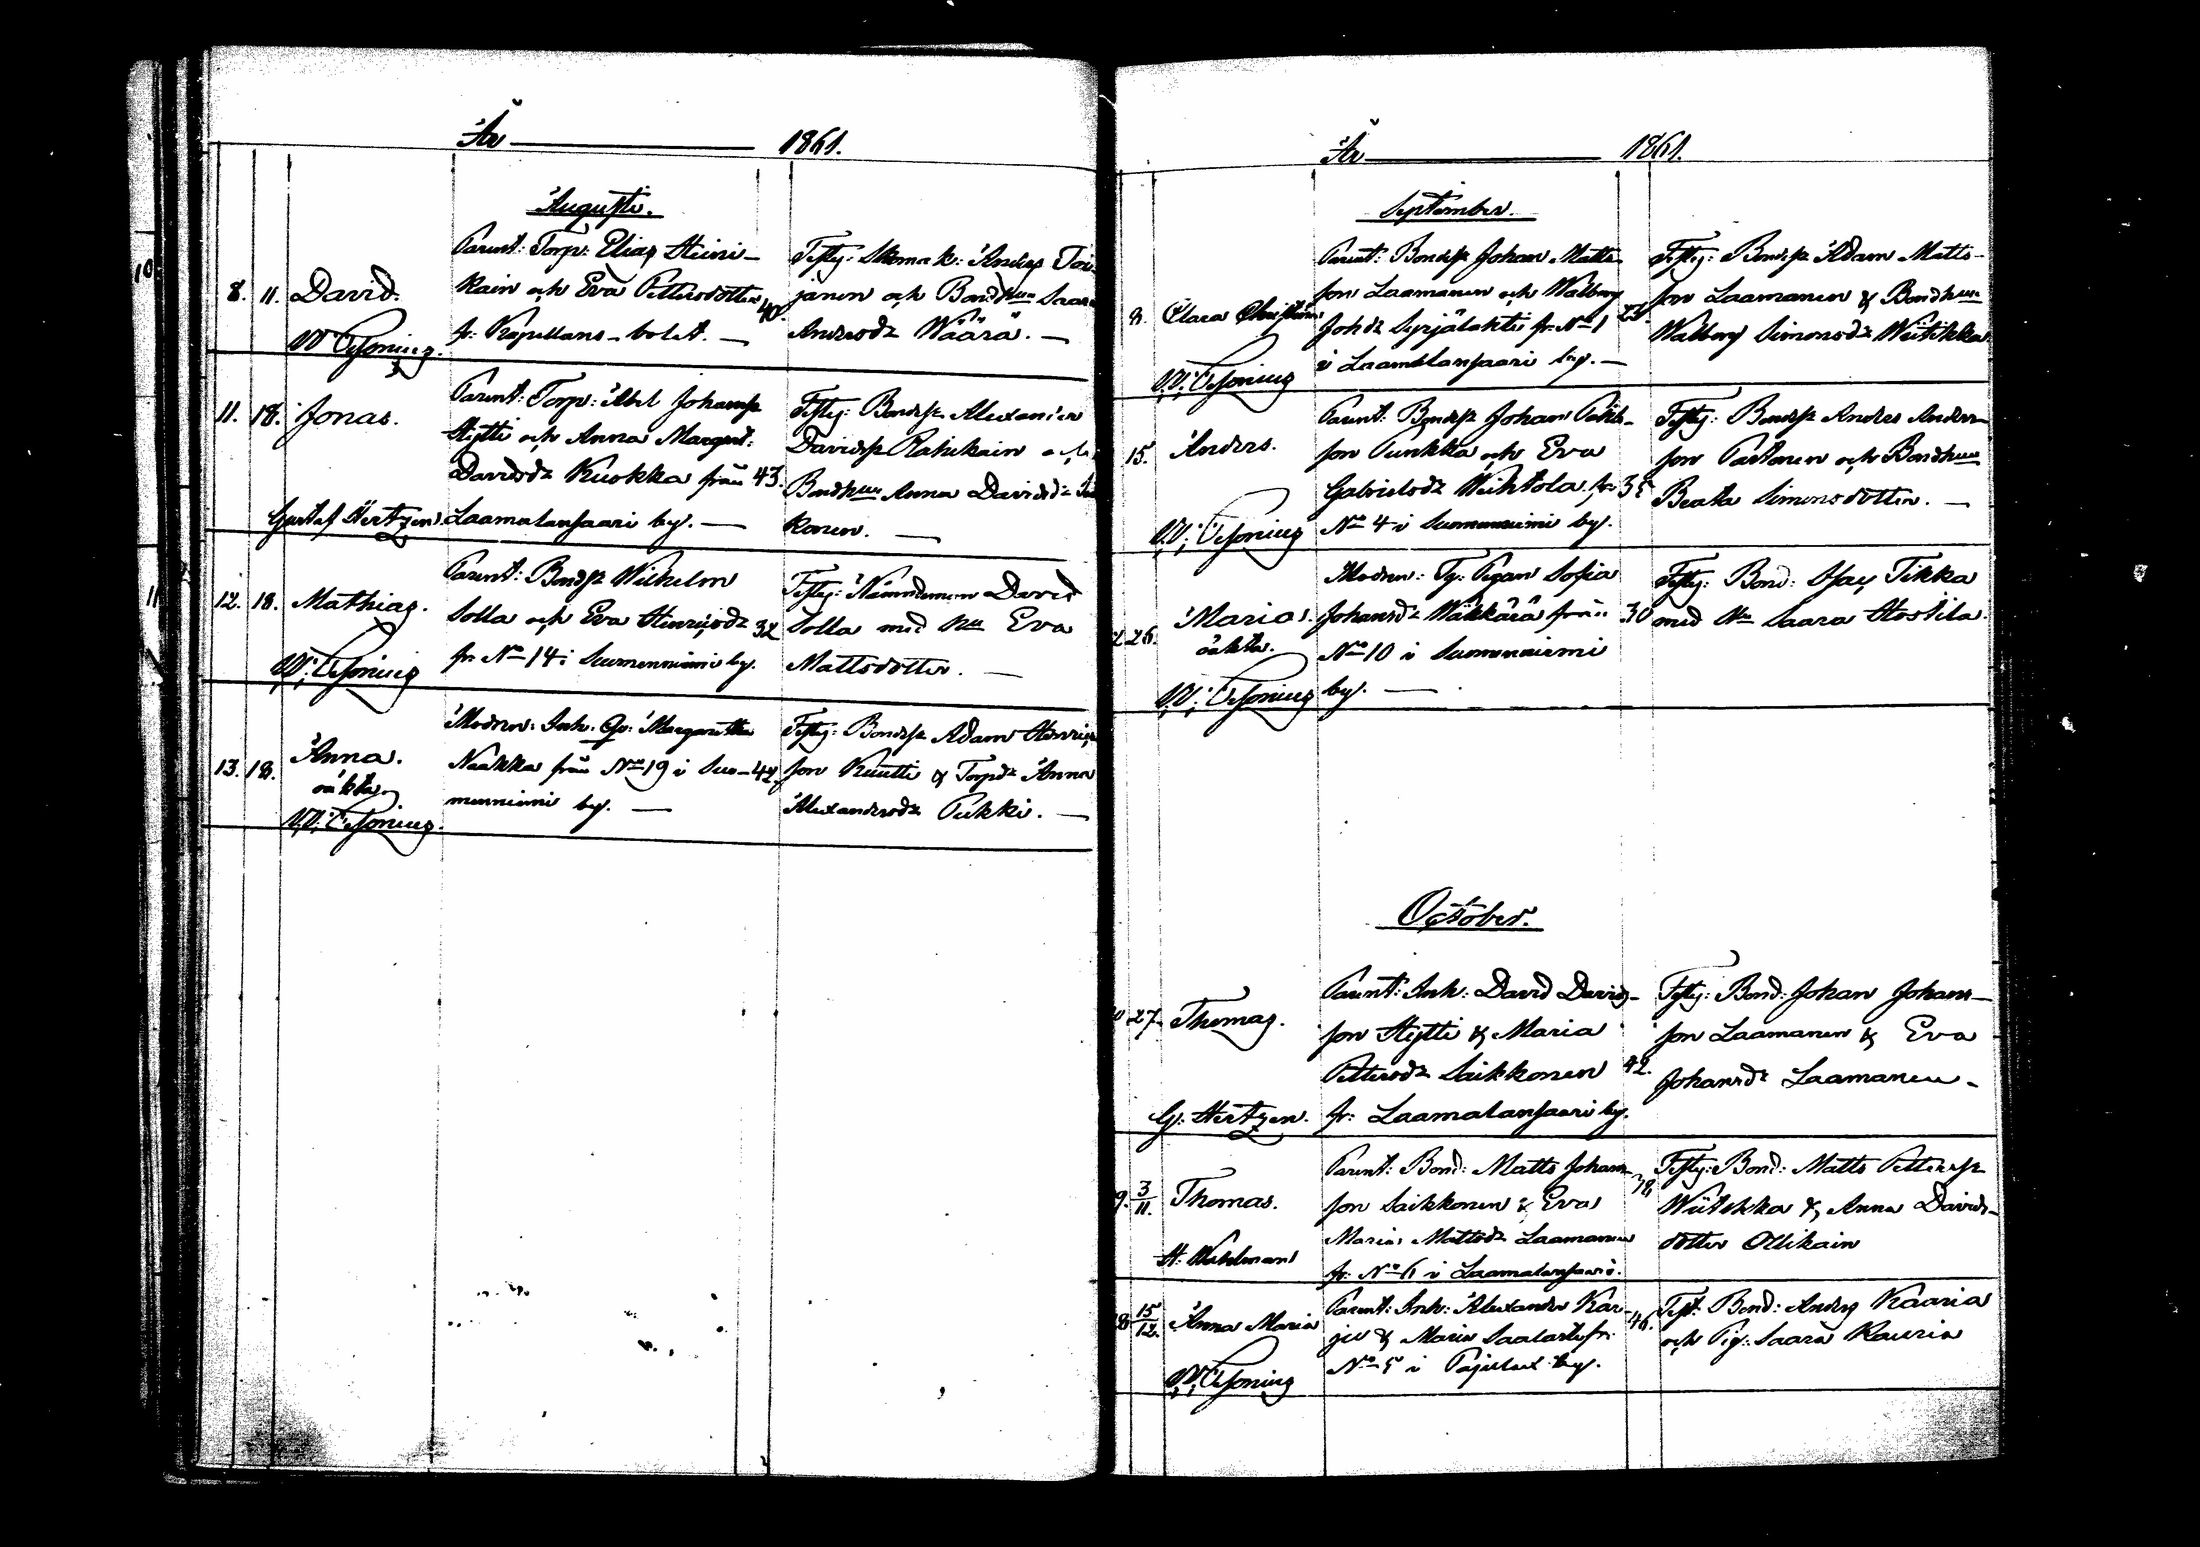 År 1861.
Augusti.
8. 11. David.
Parent: Torp: Elias Heini-
kain och Eva Pettersdotter 40.
fr. Kapellans-bolet. —
Testes: Skomak: Anders Toi-
janen och Bondhun Saara
Andersdr Wäärä. —
11. 18. Jonas.
Gustaf Hertzen.
Parent: Torp: Abel Johanss
Hytti och Anna Margret:
Davidsdr Kuokka från 43.
Laamalansaari by. —
Testes: Bondess Alexander
Davidss Rahikain och
Bondhun Anna Davidsdr
konen. —
12. 18. Mathias.
Parent: Bondss Wilhelm
Solla och Eva Hinricsdr 32
fr. No 14 i Suomenniemi by.
Testes: Nämndeman David
Solla med Hu Eva
Mattsdotter. —
13. 18. Anna.
oäkta
Modren: Inh. Margaretha
Naakka från No 19 i Suo- 42
menniemi by. —
Testes: Bondess Adam Henrics
son Kuutti & Torpdr Anna
Alexandersdr Pukki. —
År 1861.
September.
8. Clara Christina
Parent: Bondess Johan Matts
son Laamanen och Walborg 23.
Johdr Syrjälahti fr. No 1
i Laamalansaari by. —
Testes: Bondess Adam Matts-
son Laamanen & Bondhun
Walborg Simonsdr Weitikka
15. Anders.
Parent: Bondess Johan
son Punkka och Eva
Gabrielsdr Weihtola fr. 35
No 4 i Suomenniemi by.
Testes: Bondess Anders Anders-
son Partanen och Bondhun
Beata Simonsdotter. —
26. Maria.
oäkta.
Modren: Pigan Sofia
Johansdr Wäkkärä från 30
No 10 i Suomenniemi
by. —
Testes: Bond: Tikka
med Hu Saara Hostila.
October.
27. Thomas.
G. Hertzen.
Parent: Inh: David Davids-
son Hytti & Maria
Pettersdr Saikkonen 42.
fr: Laamalansaari by.
Testes: Bond: Johan Johans-
son Laamanen & Eva
Johansdr Laamanen -
9. 3/11. Thomas.
Parent: Bond: Matts Johans-
son Saikkonen & Eva 38
Maria Mattsdr Laamanen
fr: No 6 i Laamalansaari.
Testes: Bond: Matts Petterss
Wiitikka & Anna Davids-
dotter Ollikain
15/12. Anna Maria
Parent: Inh: Alexander Kar-
ju & Maria fr: 46.
No 5 i by.
Test: Bond: Anders Kaaria
och Pig: Saara Kauria